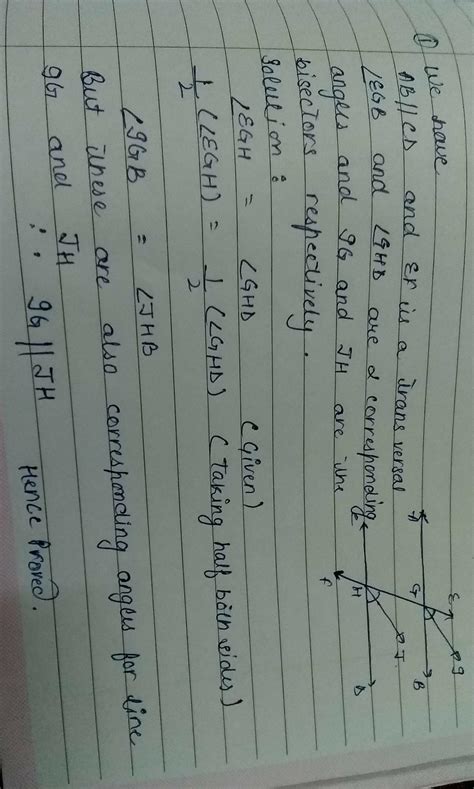 ① We have
AB || CD and EF is a transversal
∠EGB and ∠GHD are 2 corresponding
angles and IG and JH are the
bisectors respectively.
Solution :
∠EGH = ∠GHD (Given)
1/2 (∠EGH) = 1/2 (∠GHD) (Taking half both sides)
∠IGB = ∠JHB
But these are also corresponding angles for line
IG and JH
∴ IG || JH
Hence Proved.
E
I
A
G
B
J
C
H
D
F